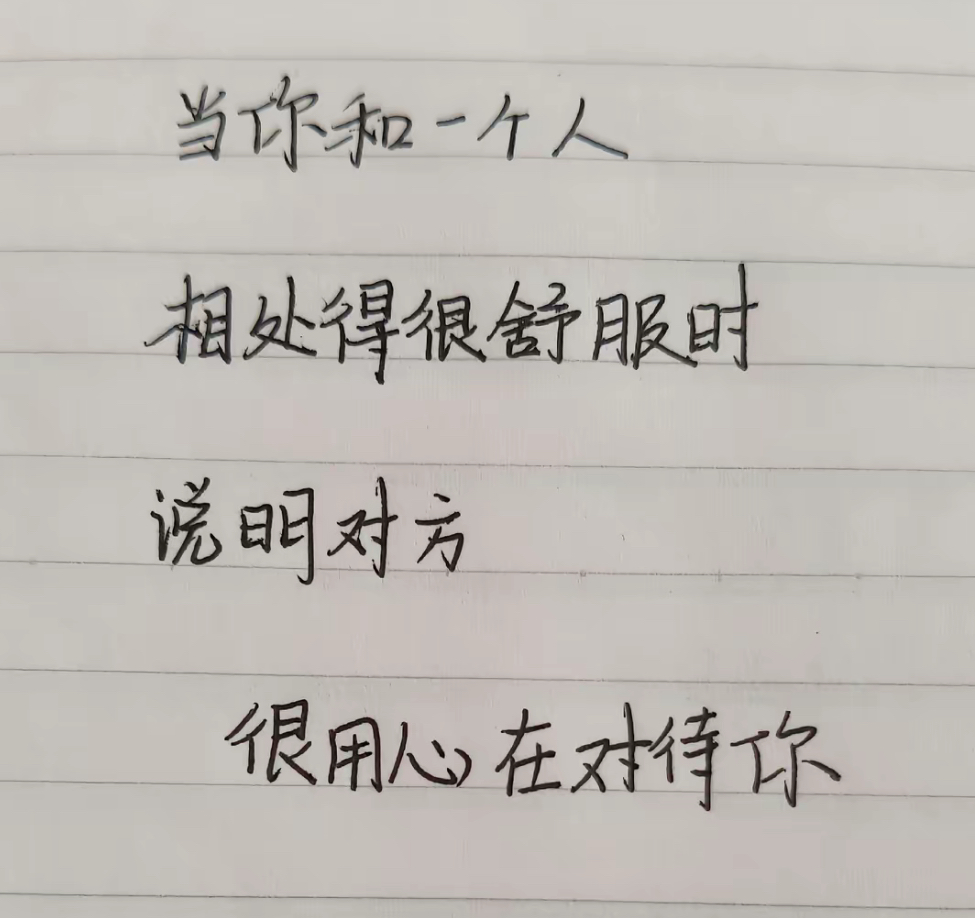 当你和一个人
相处得很舒服时
说明对方
很用心在对待你